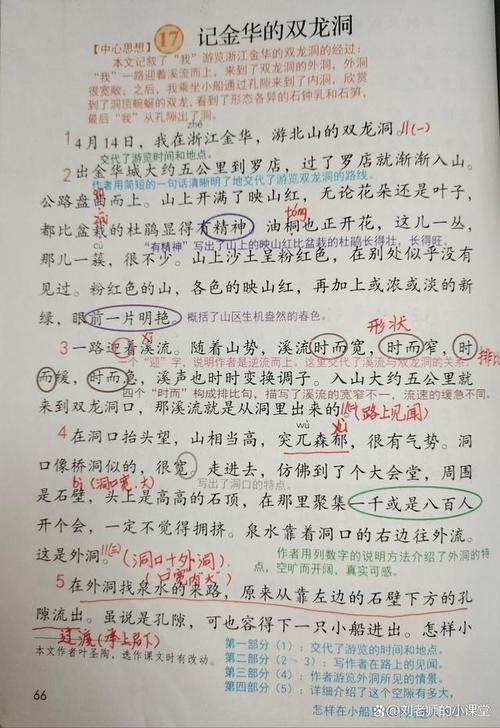 17 记金华的双龙洞
【中心思想】
本文记叙了“我”游览浙江金华的双龙洞的经过：
“我”一路迎着溪流而上，来到了双龙洞的外洞，外洞
很宽敞；之后，我乘坐小船通过孔隙来到了内洞，欣赏
到了洞顶蜿蜒的双龙，看到了形态各异的石钟乳和石笋，
最后“我”从孔隙出了洞。
zhè
1 4月14日，我在浙江金华，游北山的双龙洞 //(一)
交代了游览时间和地点。
2 出金华城大约五公里到罗店，过了罗店就渐渐入山。
作者用简短的一句话清晰明了地交代了游览双龙洞的路线。
公路盘曲而上。山上开满了映山红，无论花朵还是叶子，
tóng
都比盆栽的杜鹃显得有精神。油桐也正开花，这儿一丛，
“有精神”写出了山上的映山红比盆栽的杜鹃长得壮，长得旺。
cù
那儿一簇，很不少。山上沙土呈粉红色，在别处似乎没有
见过。粉红色的山，各色的映山红，再加上或浓或淡的新
绿，眼前一片明艳。
概括了山区生机盎然的春色。
形状
xī
3 一路迎着溪流。随着山势，溪流时而宽，时而窄，时
排比
一个“迎”字，说明作者是逆流而上。这里交代了溪流与双龙洞的关系。
而缓，时而急，溪声也时时变换调子。入山大约五公里就
四个“时而”构成排比句，描写了溪流的宽窄不一，流速的缓急不同。
来到双龙洞口，那溪流就是从洞里出来的 (路上见闻)
wù yù
4 在洞口抬头望，山相当高，突兀森郁，很有气势。洞
口像桥洞似的，很宽。走进去，仿佛到了个大会堂，周围
bì (洞口宽、大)
写出了洞口的特点。
是石壁，头上是高高的石顶，在那里聚集一千或是八百人
开个会，一定不觉得拥挤。泉水靠着洞口的右边往外流。
这是外洞。//(三) (洞口+外洞)
(口宽内大)
作者用列数字的说明方法介绍了外洞的特
点，空旷而开阔，真实可感。
5 在外洞找泉水的来路，原来从靠左边的石壁下方的孔
隙流出。虽说是孔隙，可也容得下一只小船进出。怎样小
过渡(承上启下)
本文作者叶圣陶，选作课文时有改动。
第一部分（1）：交代了游览的时间和地点。
第二部分（2～3）：写作者在路上的见闻。
第三部分（4）：作者游览外洞所见的情景。
第四部分（5）：详细介绍了这个空隙有多大，
怎样在小船
66
@刘老师的小课堂